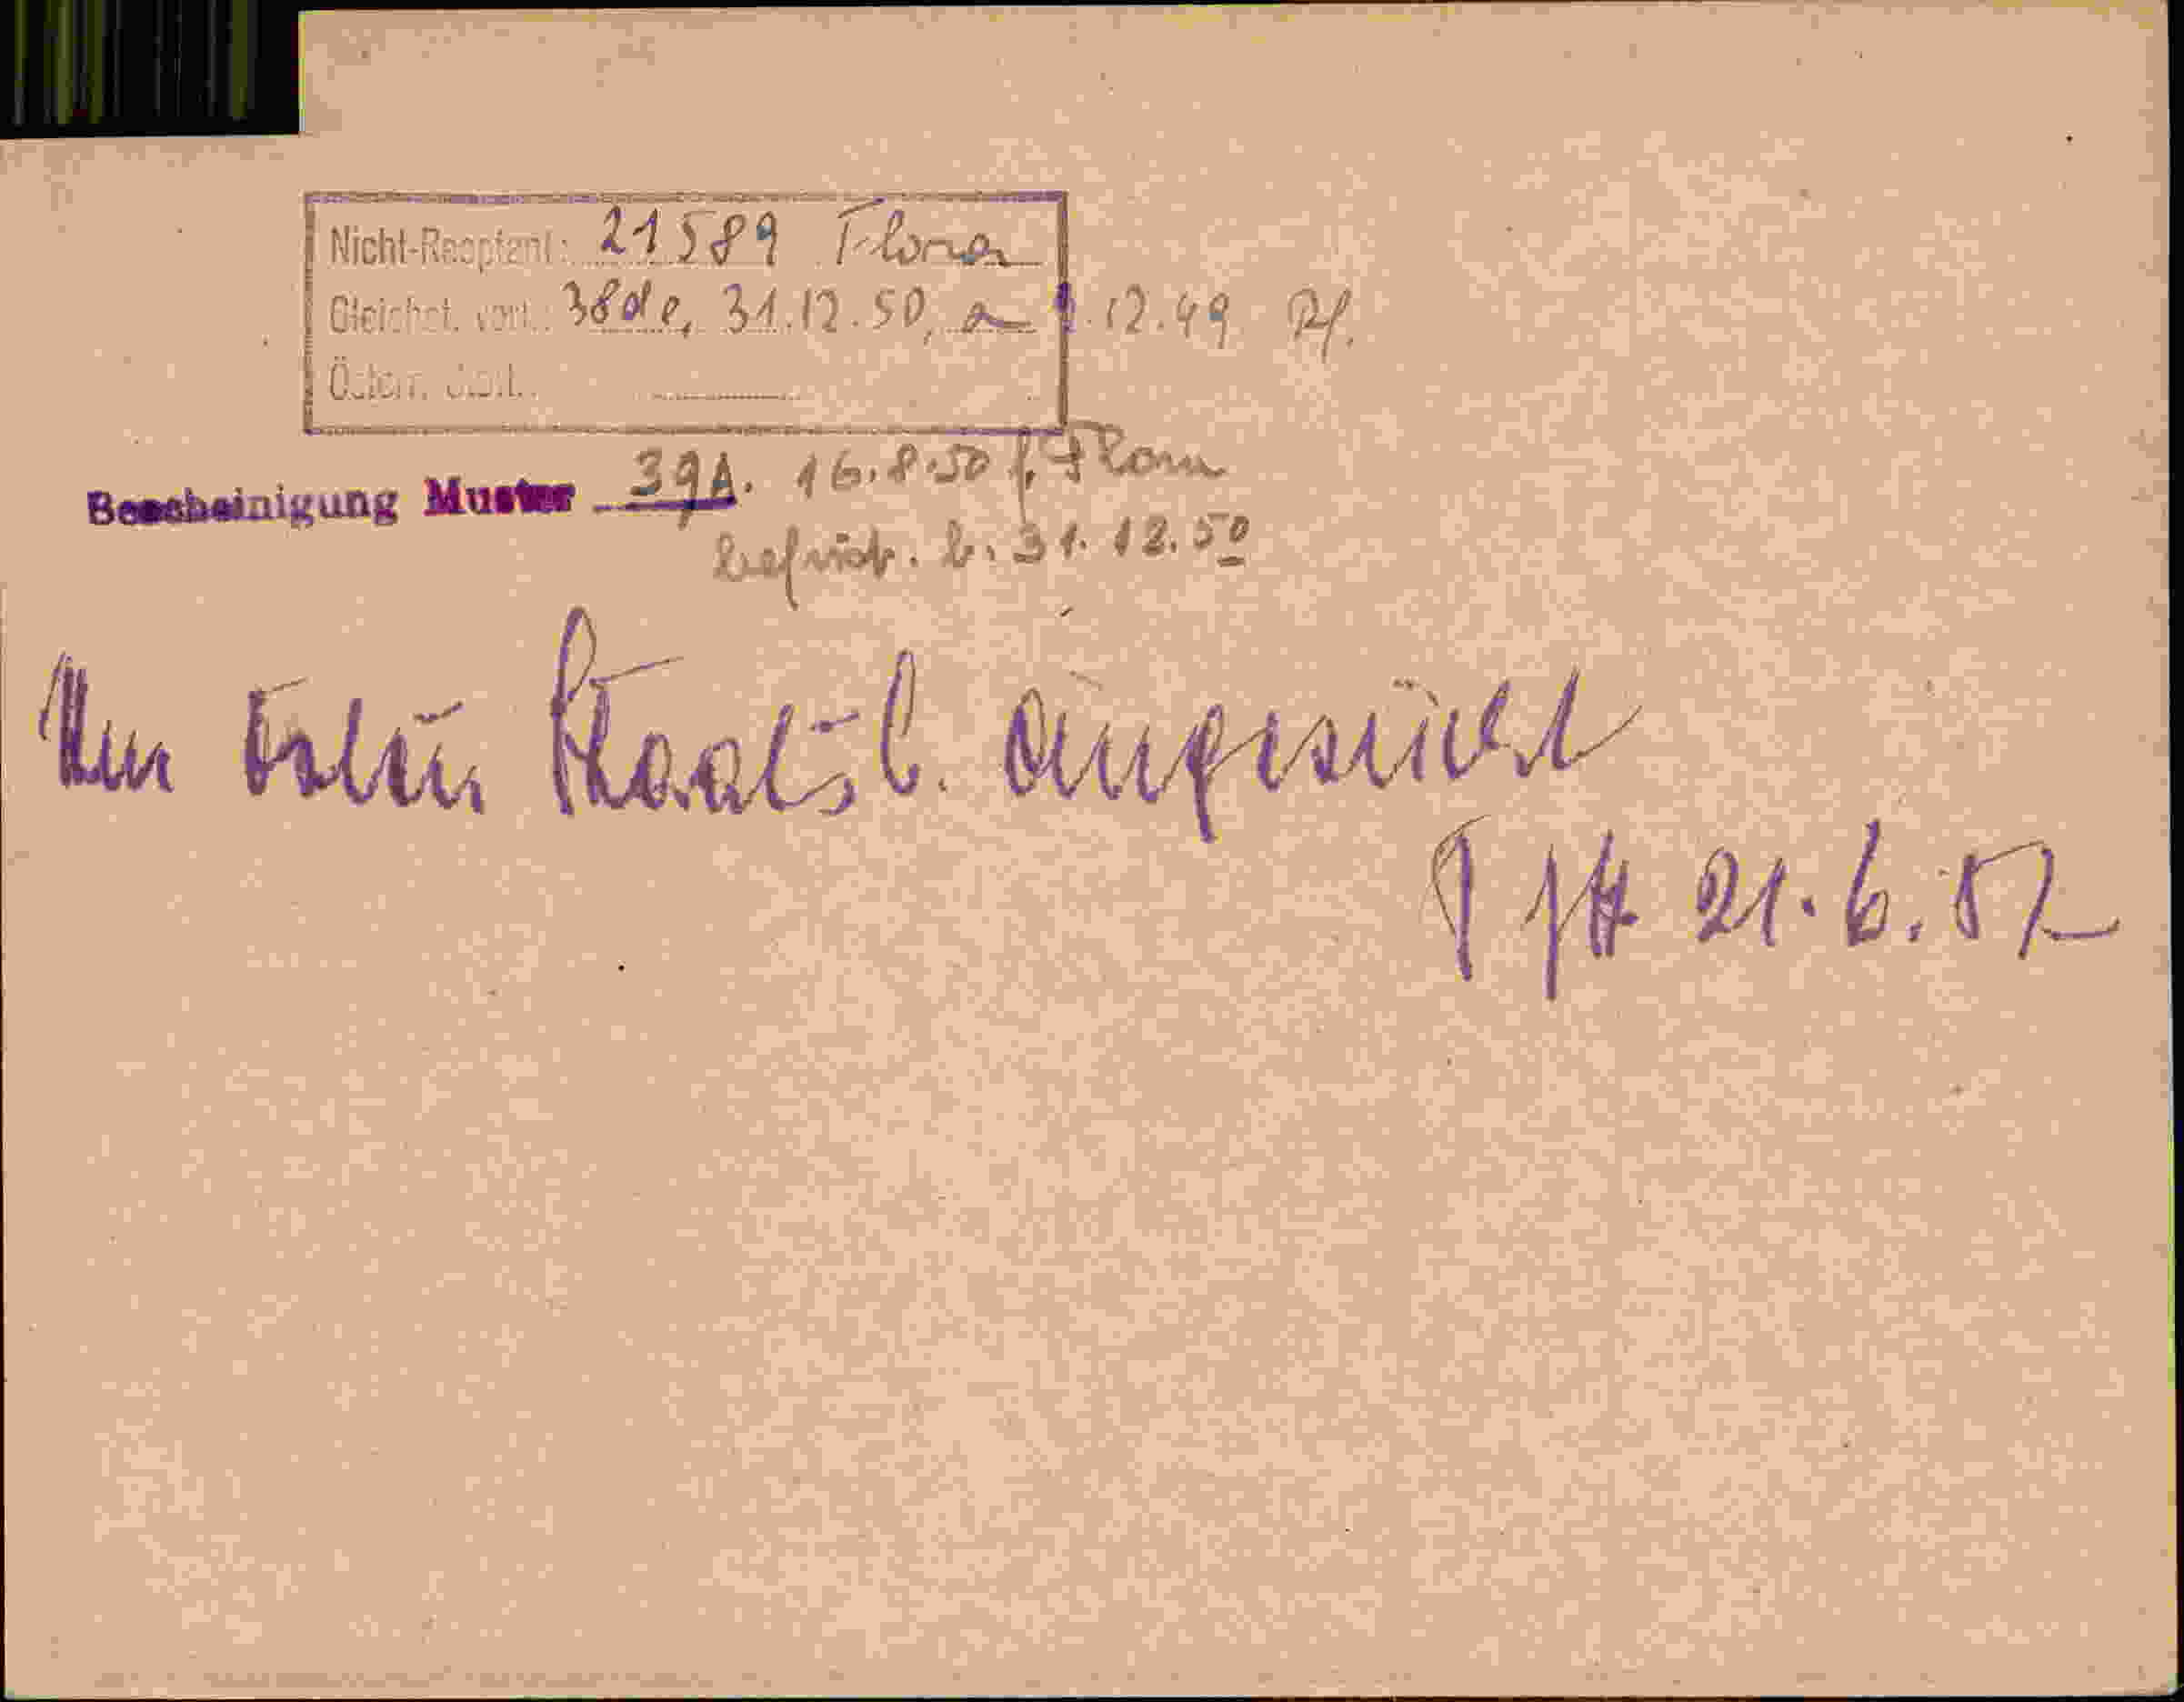 Nicht-Reoptant: 21589 Flora
Gleichst. vorl.: 38de, 31.12.50, a 9.12.49 Rf.
Österr. Stb.:
Bescheinigung Muster 39A. 16.8.50 f. Flora
befrist. b. 31.12.50
Um österr Staatsb. angesucht
21.6.52